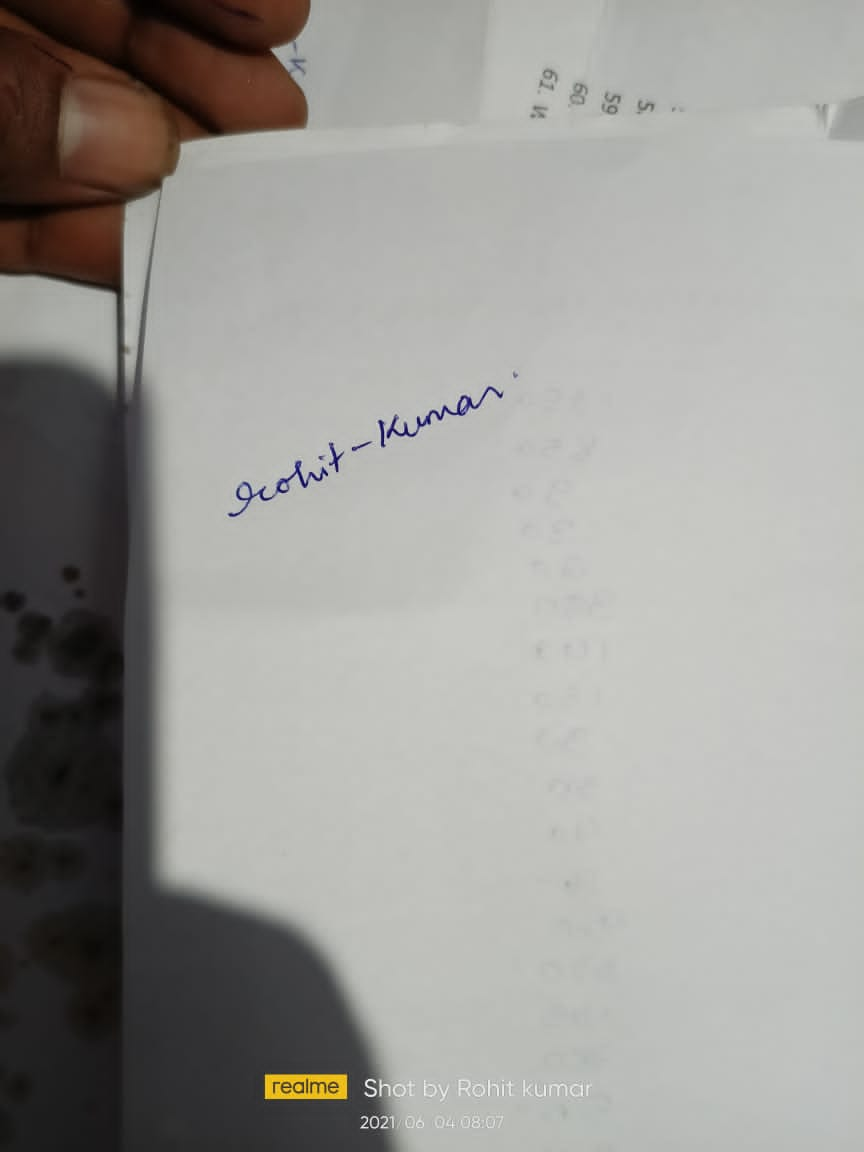 -K
5.
59
60.
61.
Rohit-Kumar
realme Shot by Rohit kumar
2021/06/04 08:07